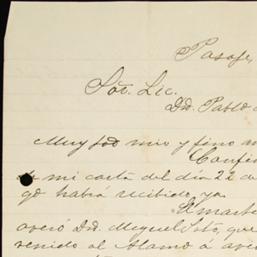 Pasaje,
Sor. Lic.
Dn. Pablo
Muy Sor mio y fino
Confir
mi carta del dia 22 de
go habrá recibido, ya
El marte
Dn. Miguel Soto, que
venido al Alamo á